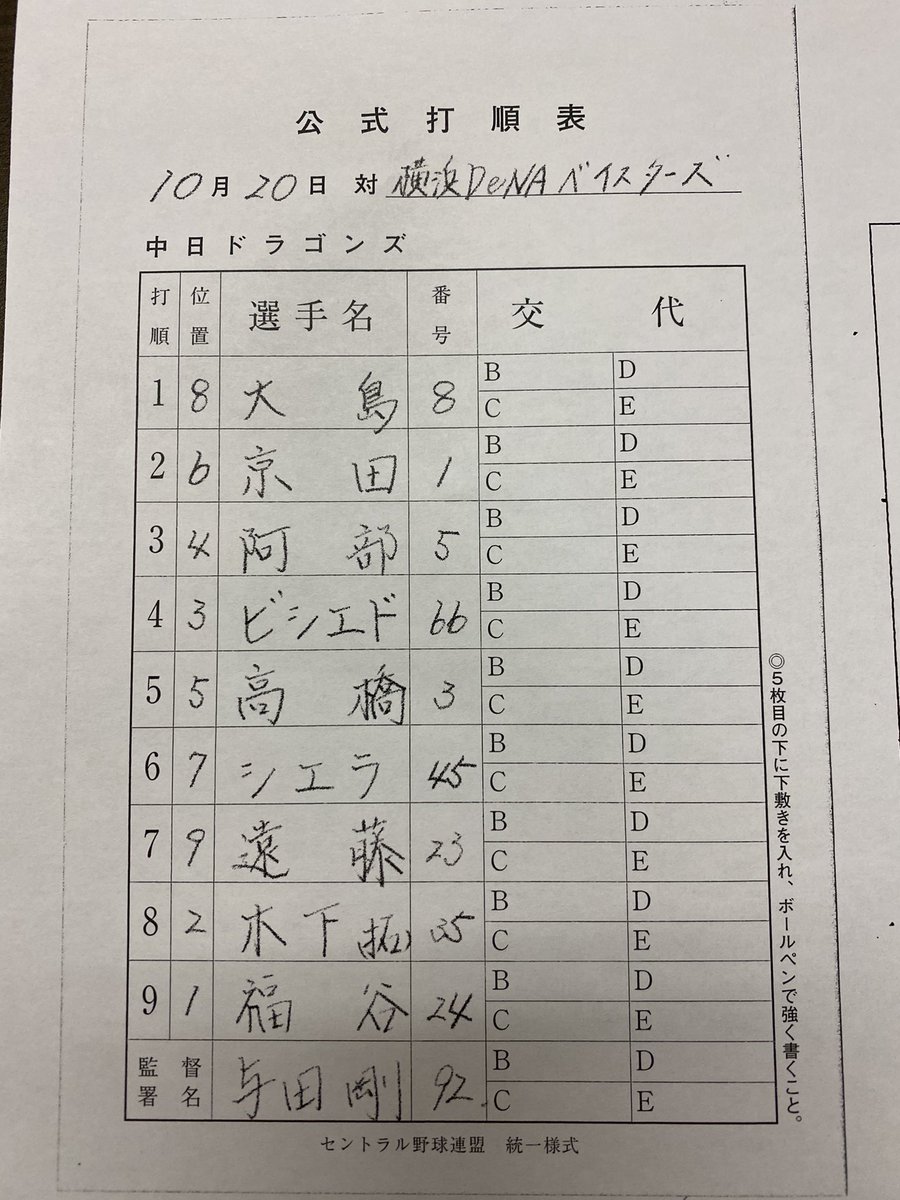 公式打順表
10月20日 対 横浜DeNAベイスターズ
中日ドラゴンズ
打順 位置 選手名 番号 交代
1 8 大島 8 B D
C E
2 6 京田 1 B D
C E
3 4 阿部 5 B D
C E
4 3 ビシエド 66 B D
C E
5 5 高橋 3 B D
C E
6 7 シエラ 45 B D
C E
7 9 遠藤 23 B D
C E
8 2 木下(拓) 35 B D
C E
9 1 福谷 24 B D
C E
監督署名 与田剛 92. B D
C E
◎5枚目の下に下敷きを入れ、ボールペンで強く書くこと。
セントラル野球連盟 統一様式